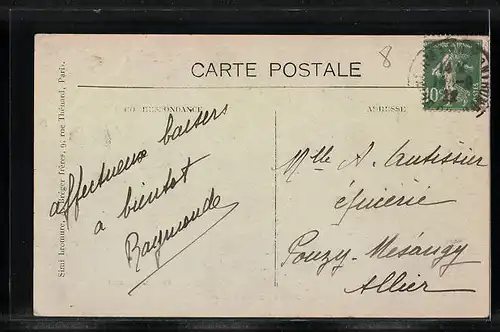 8
CARTE POSTALE
CORRESPONDANCE
ADRESSE
10
affectueux baisers
à bientot
Raymonde
Mlle A. Autissier
épicerie
Pouzy-Mésangy
Allier
Frères, 9, rue Thénard, Paris.